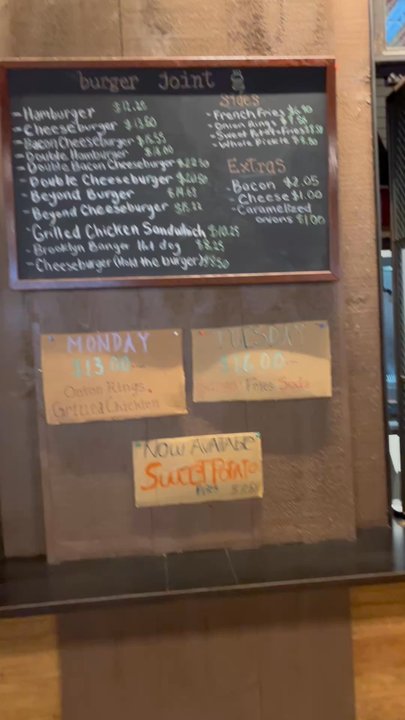 burger joint
-Hamburger $12.25
-Cheeseburger $13.50
-Bacon Cheeseburger
-Double Hamburger
-Double Bacon Cheeseburger
-Double Cheeseburger
-Beyond Burger
-Beyond Cheeseburger
-Grilled Chicken Sandwhich $10.25
-Brooklyn Banger Hot dog $8.25
-Cheeseburger (Hold the burger)
Sides
-French Fries
-Onion Rings
-Sweet Potato Fries
-Whole Pickle
Extras
-Bacon $2.05
-Cheese $1.00
-Caramelized
onions $1.00
MONDAY
$13.00
Onion Rings.
Grilled Chicken
TUESDAY
$16.00
Fries Soda
"NOW AVAILABLE"
SWEET POTATO